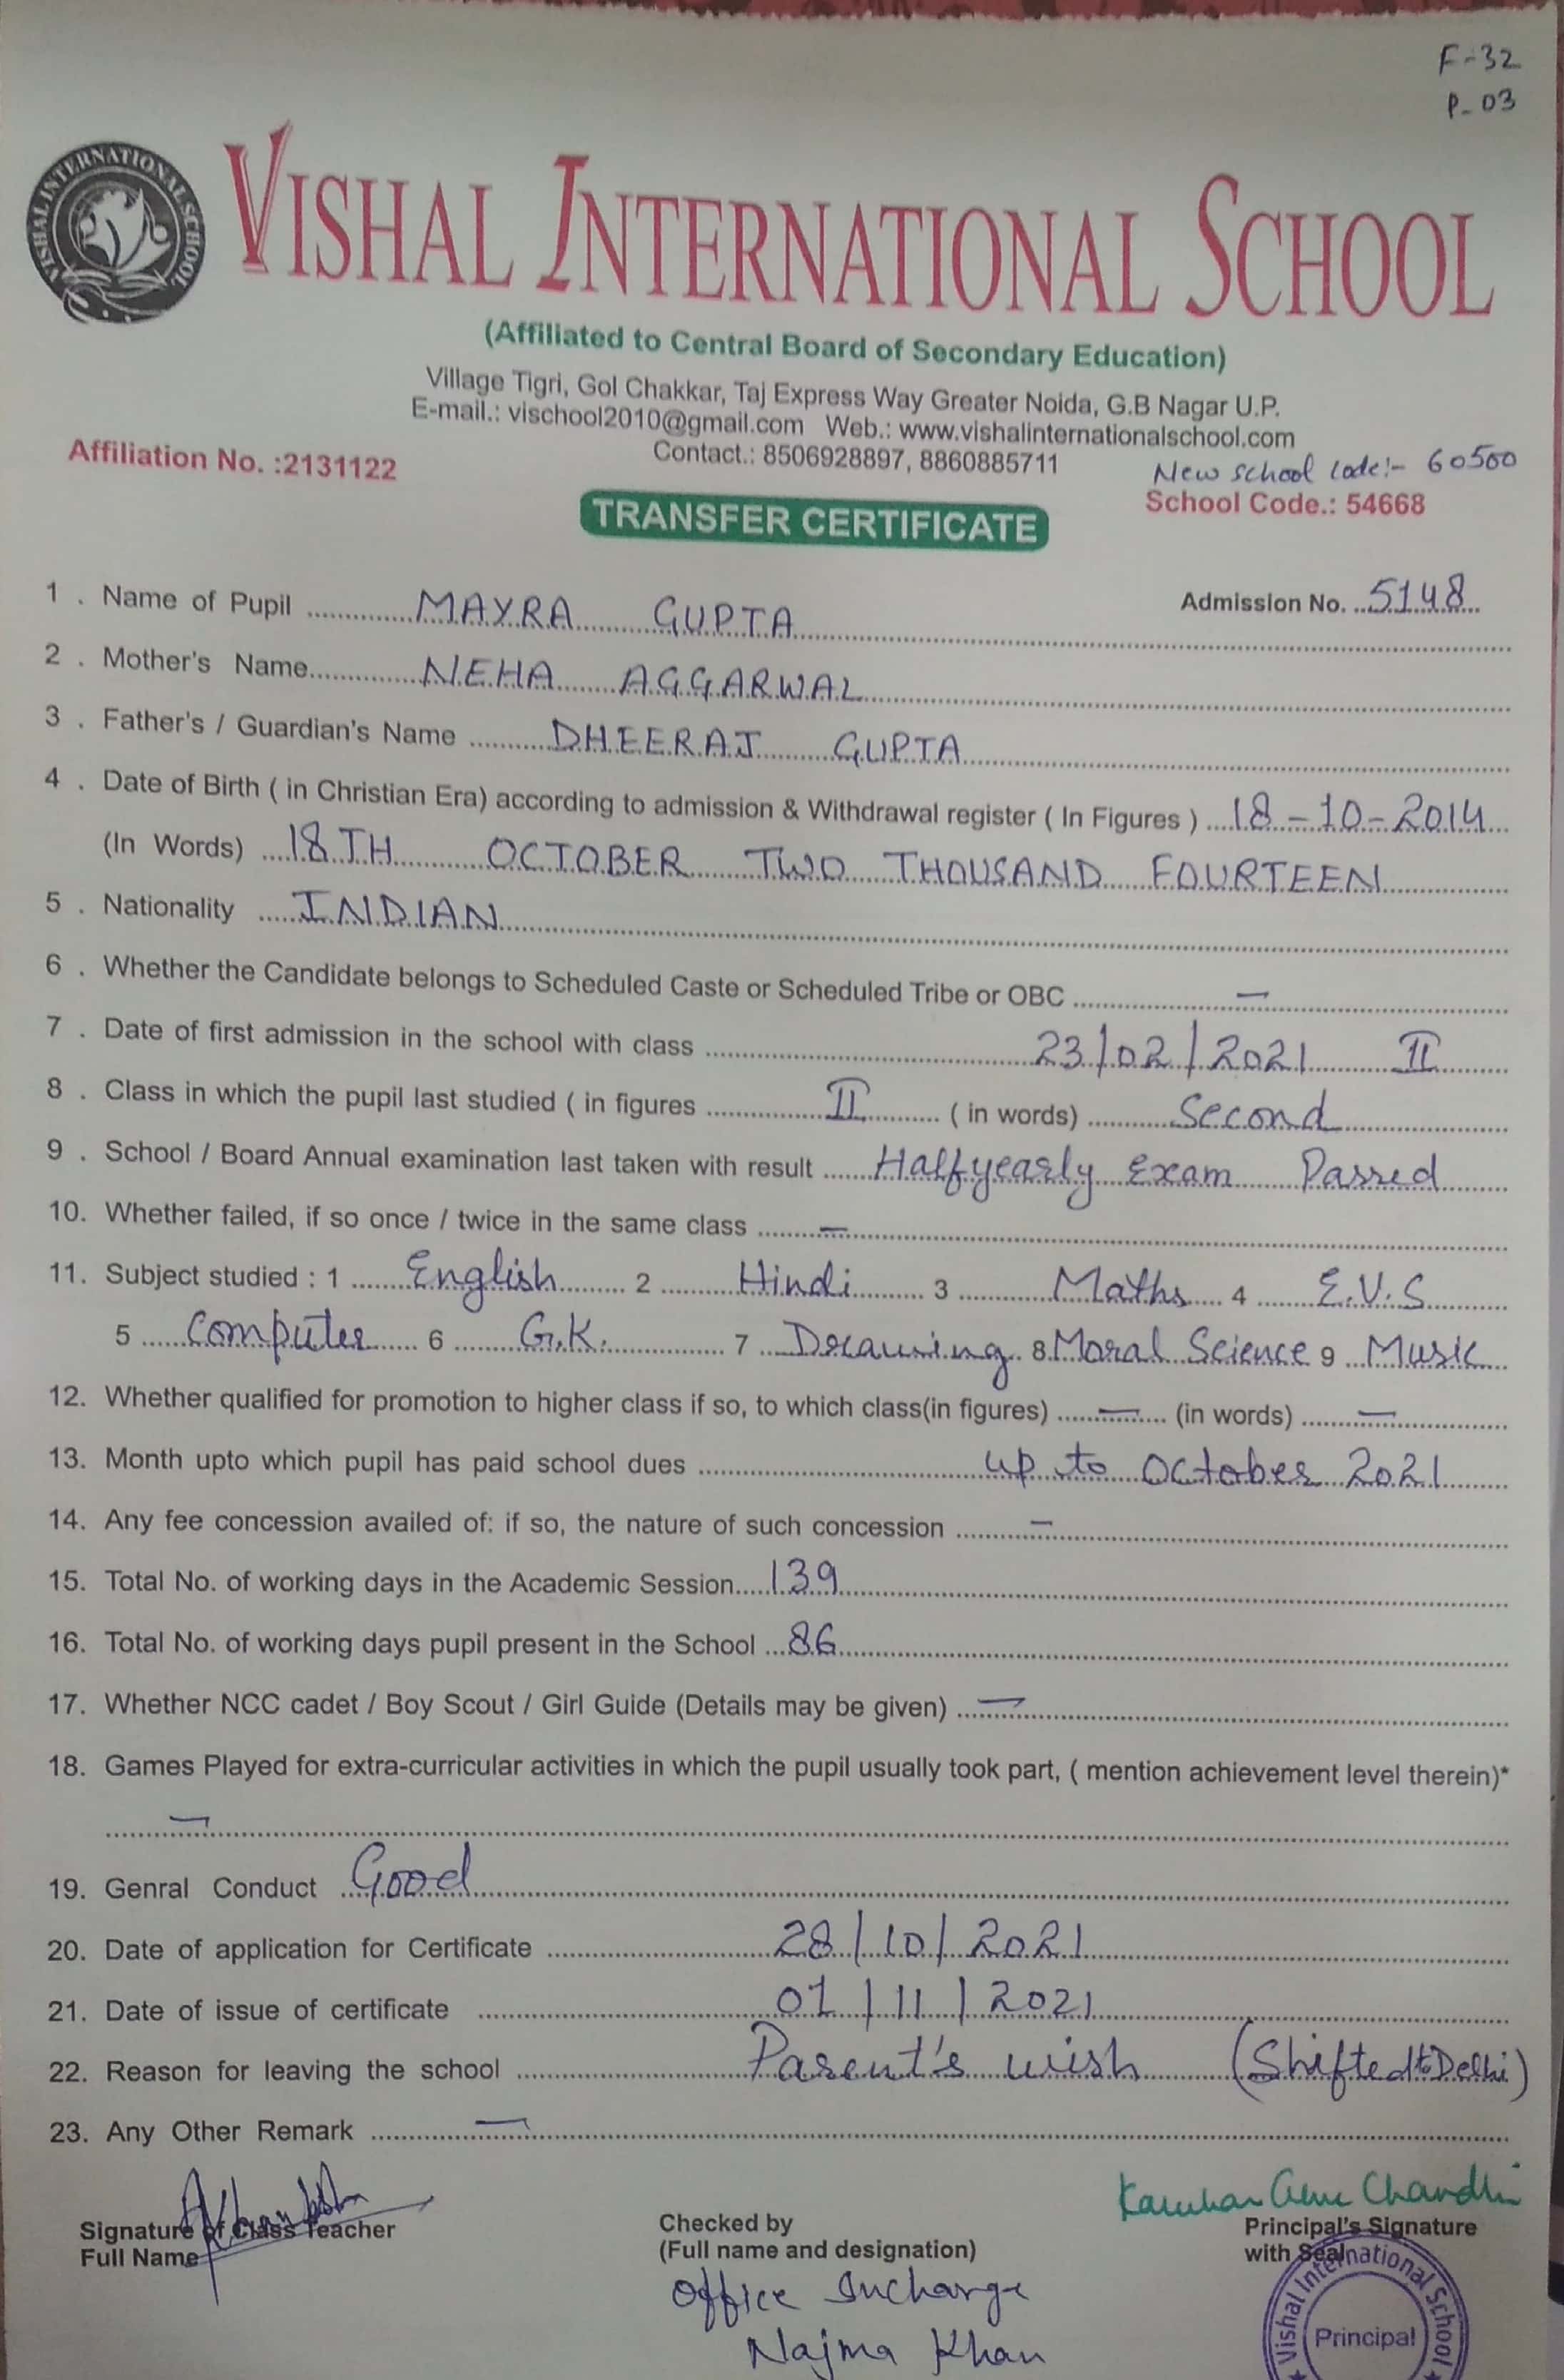 F-32
P-03
VISHAL INTERNATIONAL SCHOOL
VISHAL INTERNATIONAL SCHOOL
(Affiliated to Central Board of Secondary Education)
Village Tigri, Gol Chakkar, Taj Express Way Greater Noida, G.B Nagar U.P.
E-mail.: vischool2010@gmail.com Web.: www.vishalinternationalschool.com
Affiliation No. :2131122 Contact.: 8506928897, 8860885711 New school code:- 60500
School Code.: 54668
TRANSFER CERTIFICATE
1 . Name of Pupil MAYRA GUPTA Admission No. 5148
2 . Mother's Name NEHA AGGARWAL
3 . Father's / Guardian's Name DHEERAJ GUPTA
4 . Date of Birth ( in Christian Era) according to admission & Withdrawal register ( In Figures ) 18-10-2014
(In Words) 18TH OCTOBER TWO THOUSAND FOURTEEN
5 . Nationality INDIAN
6 . Whether the Candidate belongs to Scheduled Caste or Scheduled Tribe or OBC –
7 . Date of first admission in the school with class 23/02/2021 II
8 . Class in which the pupil last studied ( in figures II ( in words) Second
9 . School / Board Annual examination last taken with result Halfyearly Exam Passed
10. Whether failed, if so once / twice in the same class –
11. Subject studied : 1 English 2 Hindi 3 Maths 4 E.V.S
5 Computer 6 G.K. 7 Drawing 8 Moral Science 9 Music
12. Whether qualified for promotion to higher class if so, to which class(in figures) – (in words) –
13. Month upto which pupil has paid school dues up to October 2021
14. Any fee concession availed of: if so, the nature of such concession –
15. Total No. of working days in the Academic Session 139
16. Total No. of working days pupil present in the School 86
17. Whether NCC cadet / Boy Scout / Girl Guide (Details may be given) –
18. Games Played for extra-curricular activities in which the pupil usually took part, ( mention achievement level therein)*
–
19. Genral Conduct Good
20. Date of application for Certificate 28/10/2021
21. Date of issue of certificate 01/11/2021
22. Reason for leaving the school Parent's wish (Shifted to Delhi)
23. Any Other Remark –
Signature of Class Teacher
Full Name
Checked by
(Full name and designation)
Office Incharge
Najma Khan
Principal's Signature
with Seal
Vishal International School
Principal